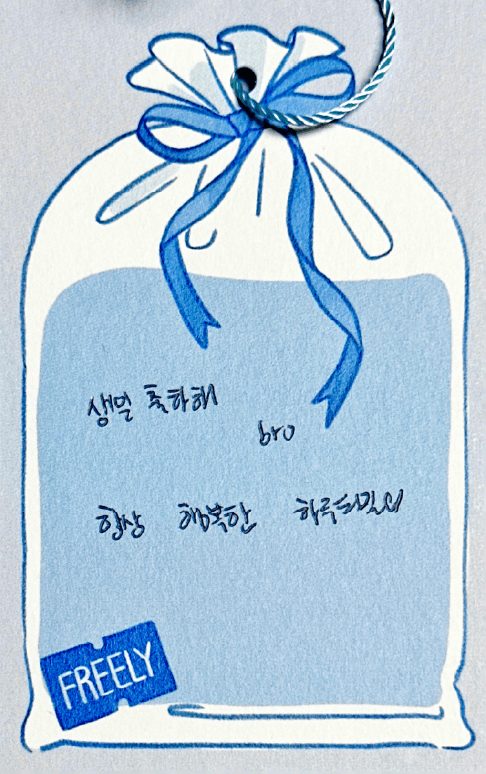 생일 축하해
bro
항상 행복한
FREELY